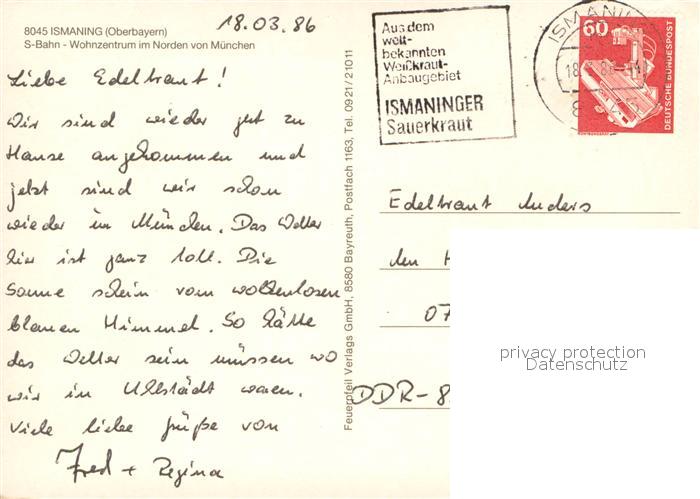 8045 ISMANING (Oberbayern)
S-Bahn - Wohnzentrum im Norden von München
18.03.86
Liebe Edeltraut!
Wir sind wieder gut zu
Hause angekommen und
jetzt sind wir schon
wieder in München. Das Wetter
hier ist ganz toll. Die
Sonne schein vom wolkenlosen
blauen Himmel. So hätte
das Wetter sein müssen wo
wir in Uhlstädt waren.
Viele liebe Grüße von
Fred + Regina
Feuerpfeil Verlags GmbH, 8580 Bayreuth, Postfach 1163, Tel. 0921/21011
Aus dem
welt-
bekannten
Weißkraut-
Anbaugebiet
ISMANINGER
Sauerkraut
ISMANING
18
60
DEUTSCHE BUNDESPOST
Edeltraut Anders
07
DDR-8
privacy protection
Datenschutz